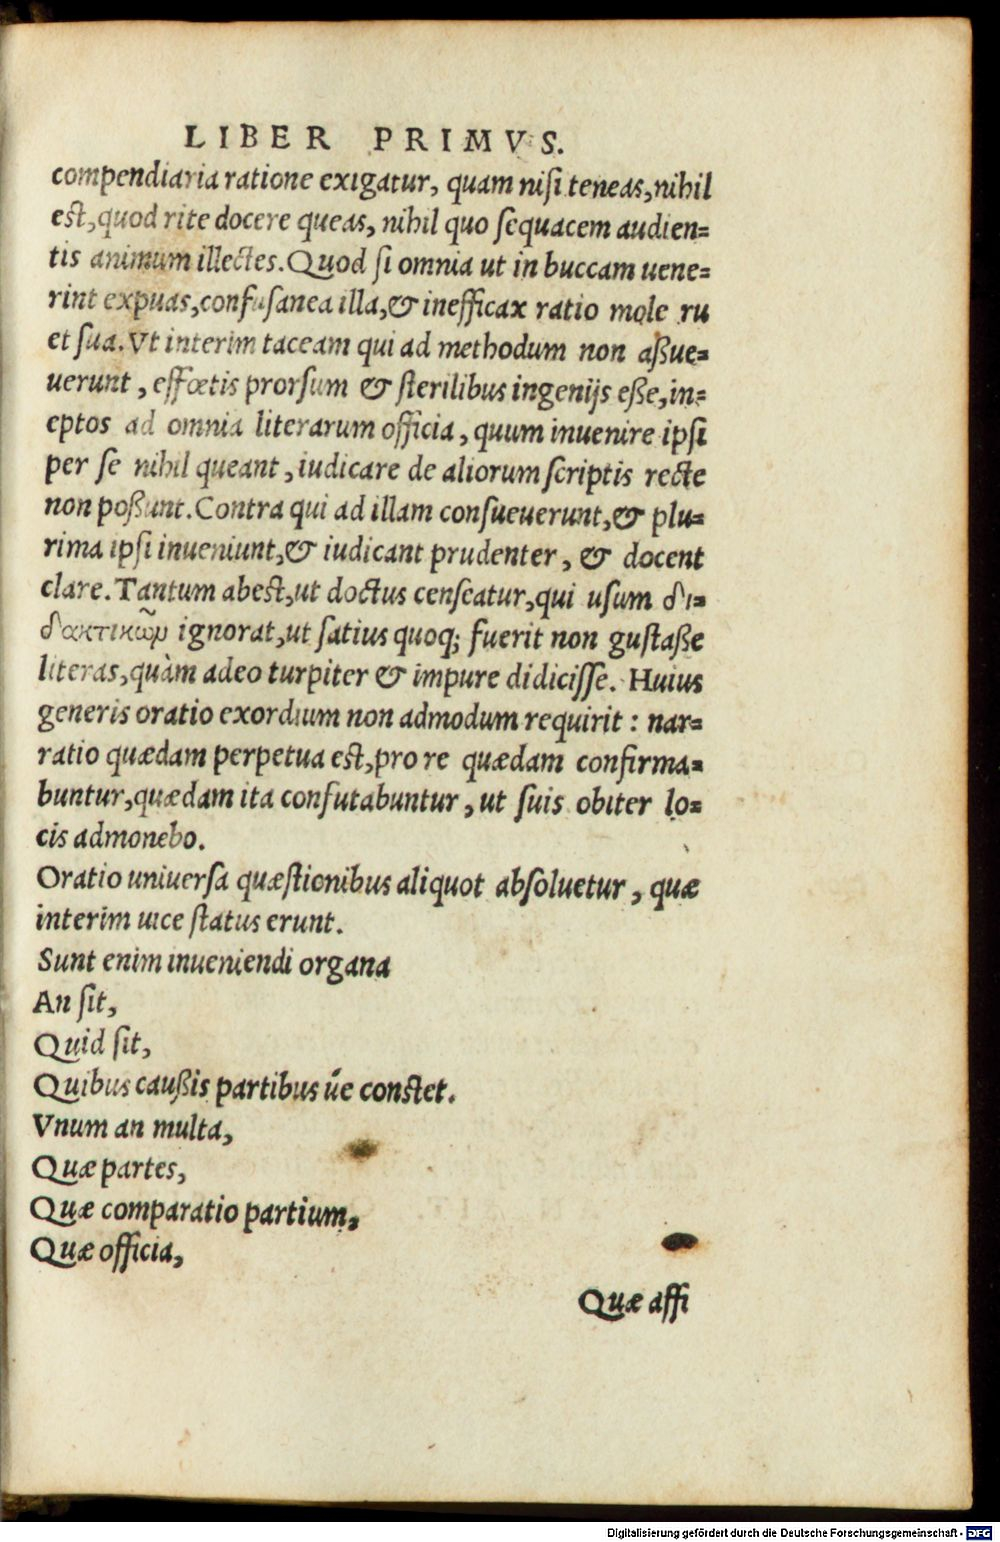 LIBER PRIMVS.
compendiaria ratione exigatur, quam nisi teneas, nihil
est, quod rite docere queas, nihil quo sequacem audien=
tis animum illectes. Quod si omnia ut in buccam uene=
rint expuas, confusanea illa, & inefficax ratio mole ru
et sua. Vt interim taceam qui ad methodum non aßue=
uerunt, effœtis prorsum & sterilibus ingenijs eße, in=
eptos ad omnia literarum officia, quum inuenire ipsi
per se nihil queant, iudicare de aliorum scriptis recte
non poßunt. Contra qui ad illam consueuerunt, & plu=
rima ipsi inueniunt, & iudicant prudenter, & docent
clare. Tantum abest, ut doctus censeatur, qui usum δι=
δακτικῶν ignorat, ut satius quoq; fuerit non gustaße
literas, quàm adeo turpiter & impure didicisse. Huius
generis oratio exordium non admodum requirit: nar=
ratio quædam perpetua est, pro re quædam confirma=
buntur, quædam ita confutabuntur, ut suis obiter lo=
cis admonebo.
Oratio uniuersa quæstionibus aliquot absoluetur, quæ
interim uice status erunt.
Sunt enim inueniendi organa
An sit,
Quid sit,
Quibus caußis partibus ūe constet.
Vnum an multa,
Quæ partes,
Quæ comparatio partium,
Quæ officia,
Quæ affi
Digitalisierung gefördert durch die Deutsche Forschungsgemeinschaft - DFG